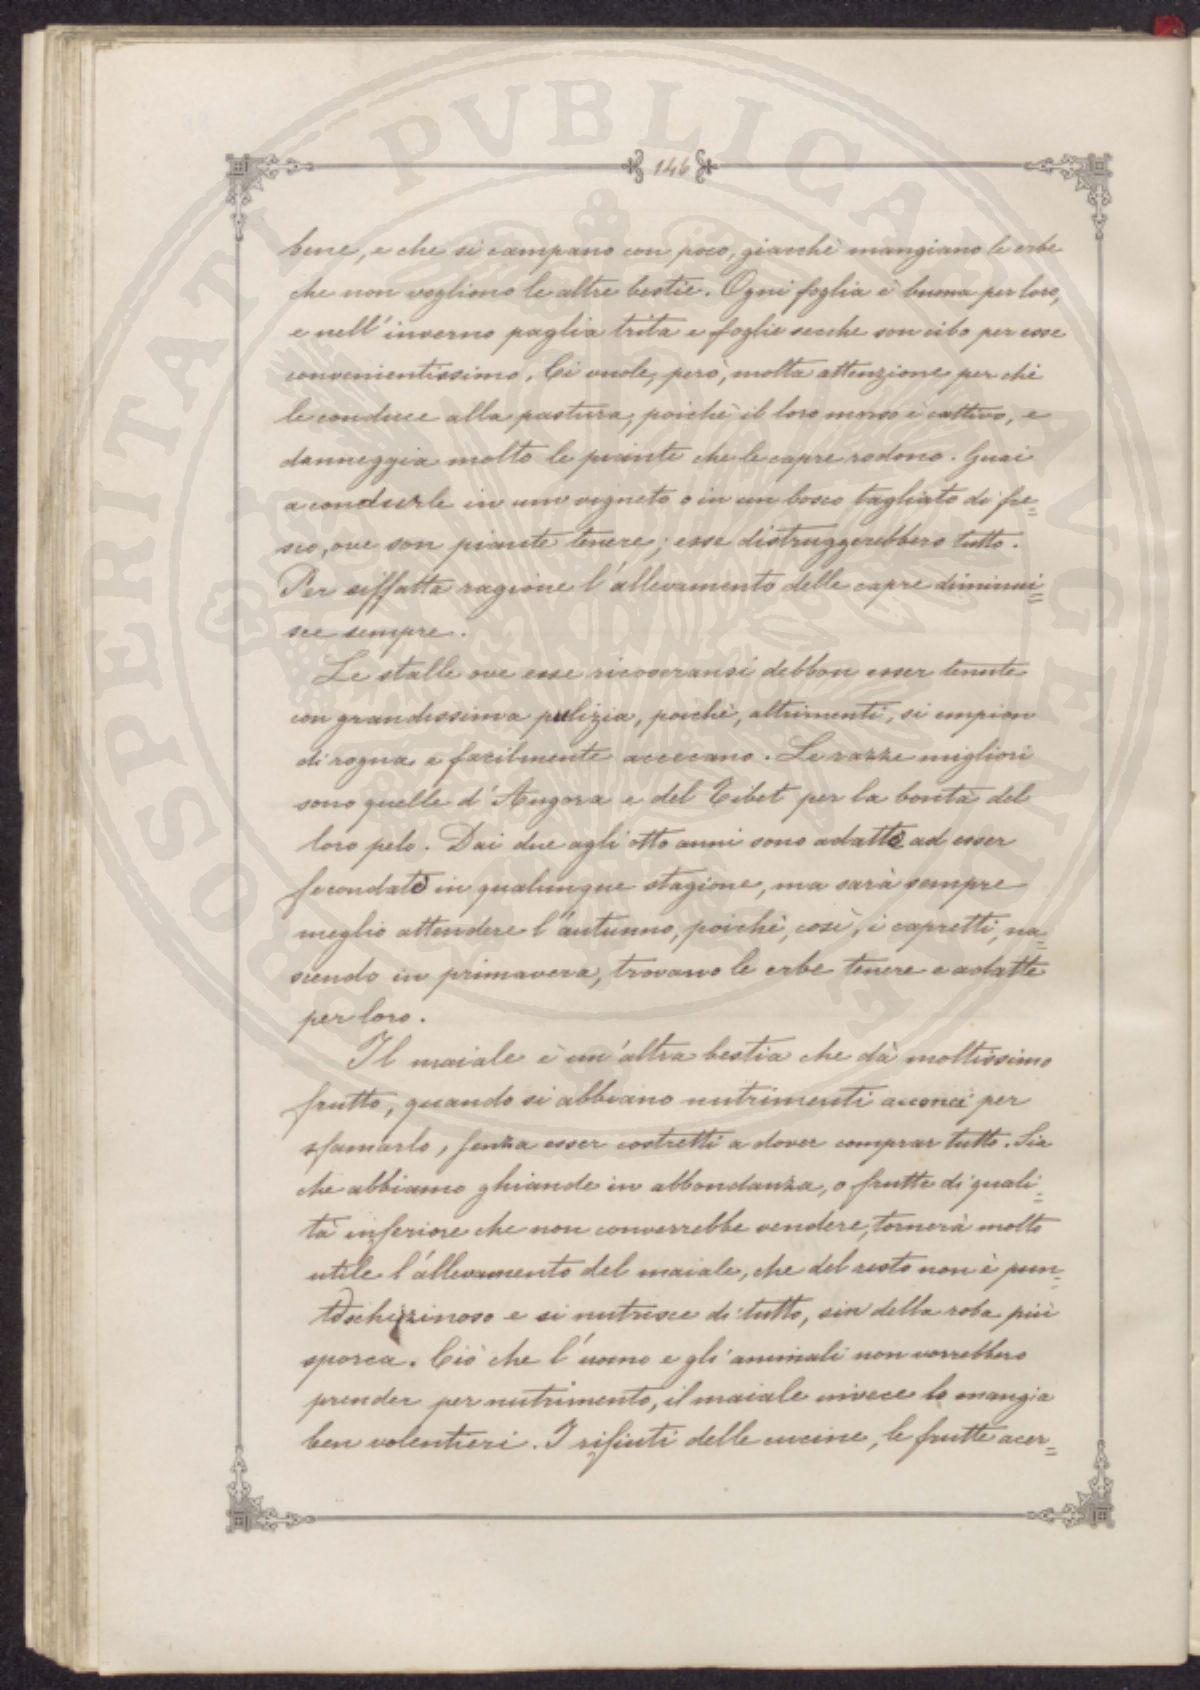 PROSPERITATI PUBLICAE AUGENDAE
146
bene, e che si campano con poco, giacchè mangiano le erbe
che non vogliono le altre bestie. Ogni foglia è buona per loro,
e nell'inverno paglia trita e foglie secche son cibo per esse
convenientissimo. Ci vuole, però, molta attenzione per chi
le conduce alla pastura, poichè il loro morso è cattivo, e
danneggia molto le piante che le capre rodono. Guai
a condurle in un vigneto o in un bosco tagliato di fre=
sco, ove son piante tenere; esse distruggerebbero tutto.
Per siffatta ragione l'allevamento delle capre diminui=
sce sempre.
Le stalle ove esse ricoveransi debbon esser tenute
con grandissima pulizia, poichè, altrimenti, si empion
di rogna e facilmente accecano. Le razze migliori
sono quelle d'Angora e del Tibet per la bontà del
loro pelo. Dai due agli otto anni sono adatte ad esser
fecondate in qualunque stagione, ma sarà sempre
meglio attendere l'autunno, poichè, così, i capretti, na=
scendo in primavera, trovano le erbe tenere e adatte
per loro.
Il maiale è un'altra bestia che dà moltissimo
frutto, quando si abbiano nutrimenti acconci per
sfamarlo, senza esser costretti a dover comprar tutto. Sia
che abbiamo ghiande in abbondanza, o frutte di quali=
tà inferiore che non converrebbe vendere, tornerà molto
utile l'allevamento del maiale, che del resto non è pun=
to schizzinoso e si nutrisce di tutto, sin della roba più
sporca. Ciò che l'uomo e gli animali non vorrebbero
prender per nutrimento, il maiale invece lo mangia
ben volentieri. I rifiuti delle cucine, le frutte acer=